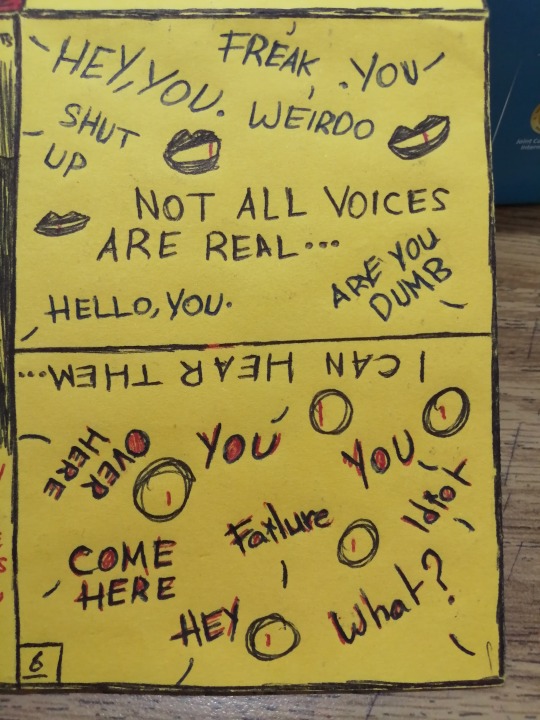 FREAK
HEY, YOU.
.YOU
SHUT
UP
WEIRDO
NOT ALL VOICES
ARE REAL...
ARE YOU
DUMB
HELLO, YOU.
I CAN HEAR THEM...
OVER
HERE
YOU
YOU
Idiot
Failure
COME
HERE
HEY
What?
6